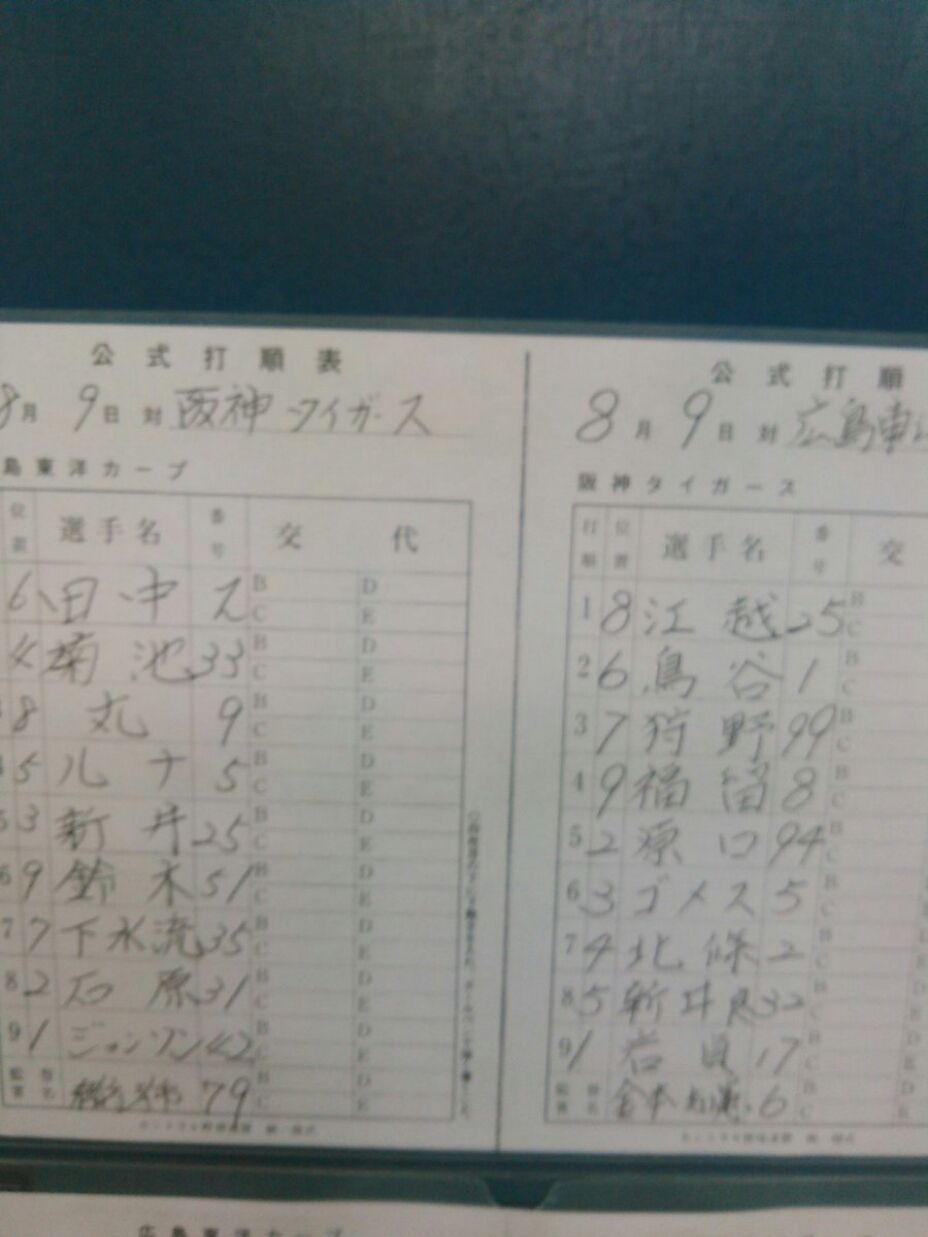 公式打順表
8月 9日 対 阪神タイガース
島東洋カープ
位置 選手名 番号 交代
6 田中 2 B C D E
4 菊池 33 B C D E
8 丸 9 B C D E
5 ルナ 5 B C D E
5 3 新井 25 B C D E
6 9 鈴木 51 B C D E
7 7 下水流 35 B C D E
8 2 石原 31 B C D E
9 1 ジョンソン 42 B C D E
監督 署名 79 B C D E
公式打順
8月 9日 対 広島東
阪神タイガース
打順 位置 選手名 番号 交
1 8 江越 25 B C
2 6 鳥谷 1 B C
3 7 狩野 99 B C
4 9 福留 8 B C
5 2 原口 94 B C
6 3 ゴメス 5 B C
7 4 北條 2 B C
8 5 新井良 32 B C D E
9 1 岩貞 17 B C D E
監督 署名 金本知憲 6 B C D E
広島東洋カープ